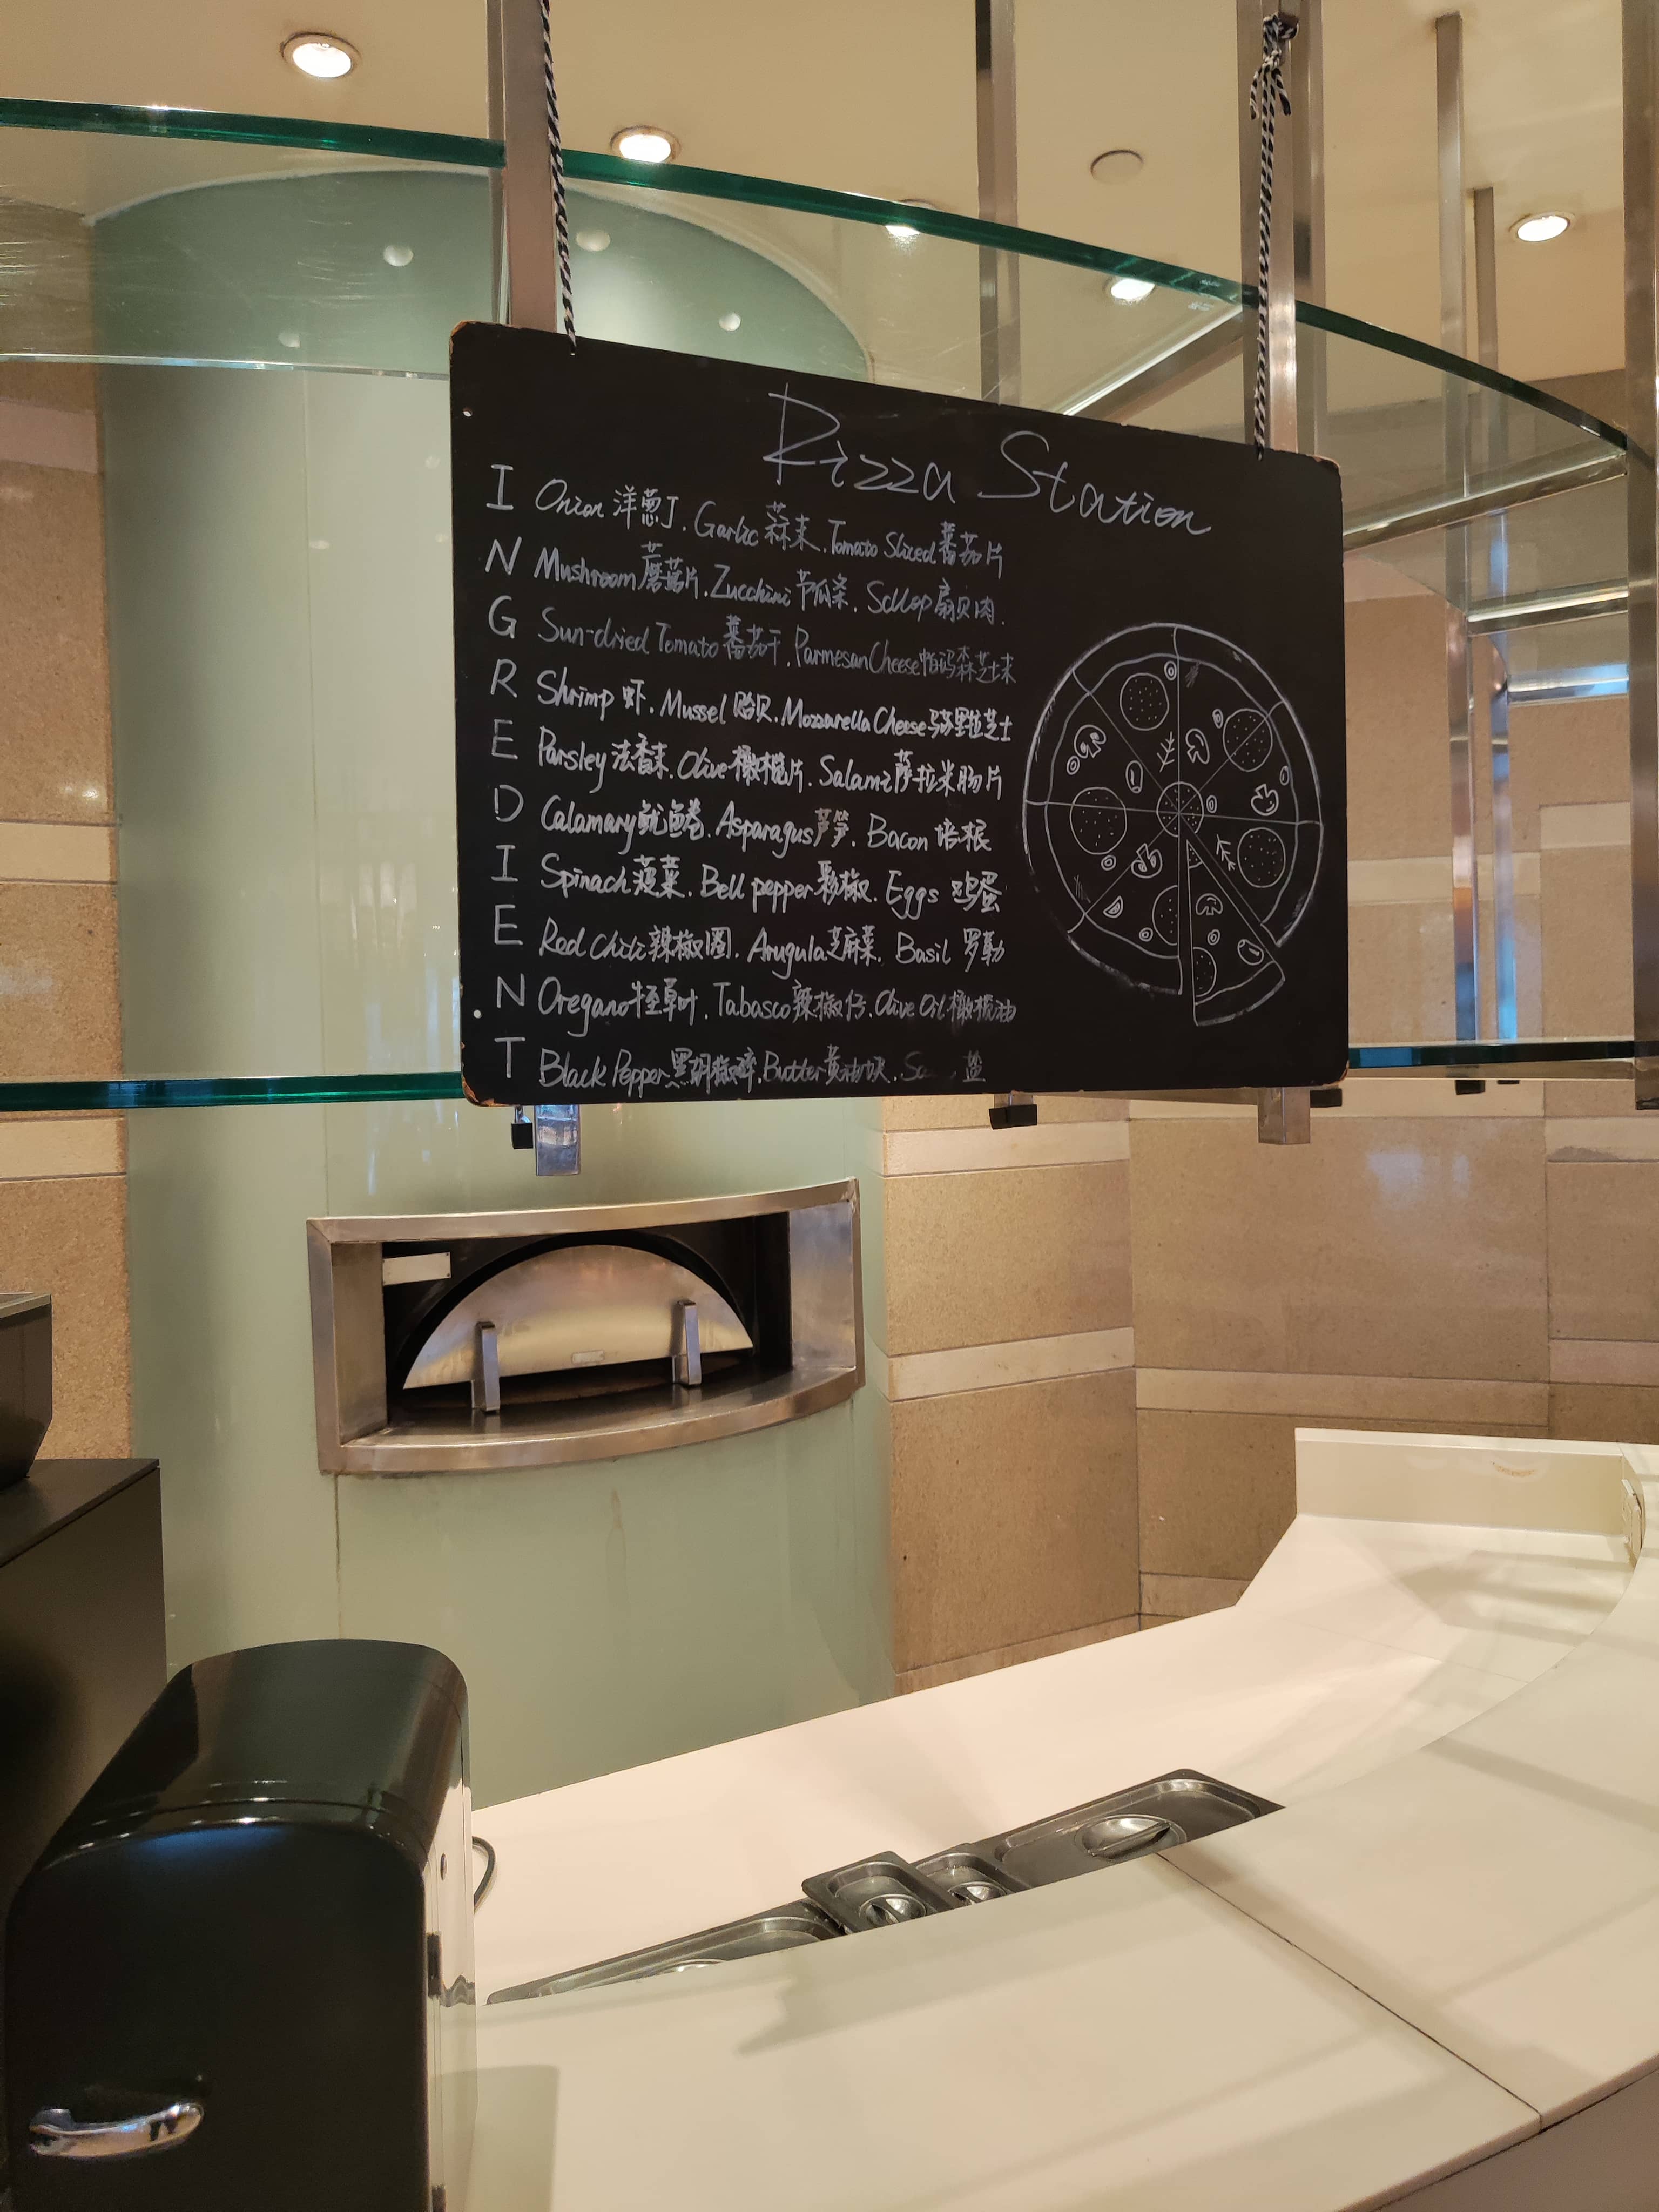 Pizza Station
I Onion 洋葱丁. Garlic 蒜末. Tomato Sliced 番茄片
N Mushroom 蘑菇片. Zucchini 节瓜条. Scllop 扇贝肉.
G Sun-dried Tomato 蕃茄干. Parmesan Cheese 帕玛森芝士末
R Shrimp 虾. Mussel 贻贝. Mozzarella Cheese 马苏里拉芝士
E Parsley 法香末. Olive 橄榄片. Salami 萨拉米肠片
D Calamary 鱿鱼卷. Asparagus 芦笋. Bacon 培根
I Spinach 菠菜. Bell pepper 彩椒. Eggs 鸡蛋
E Red Chili 辣椒圈. Arugula 芝麻菜. Basil 罗勒
N Oregano 牛至草叶. Tabasco 辣椒仔. Olive Oil 橄榄油
T Black Pepper 黑胡椒碎. Butter 黄油块. 盐